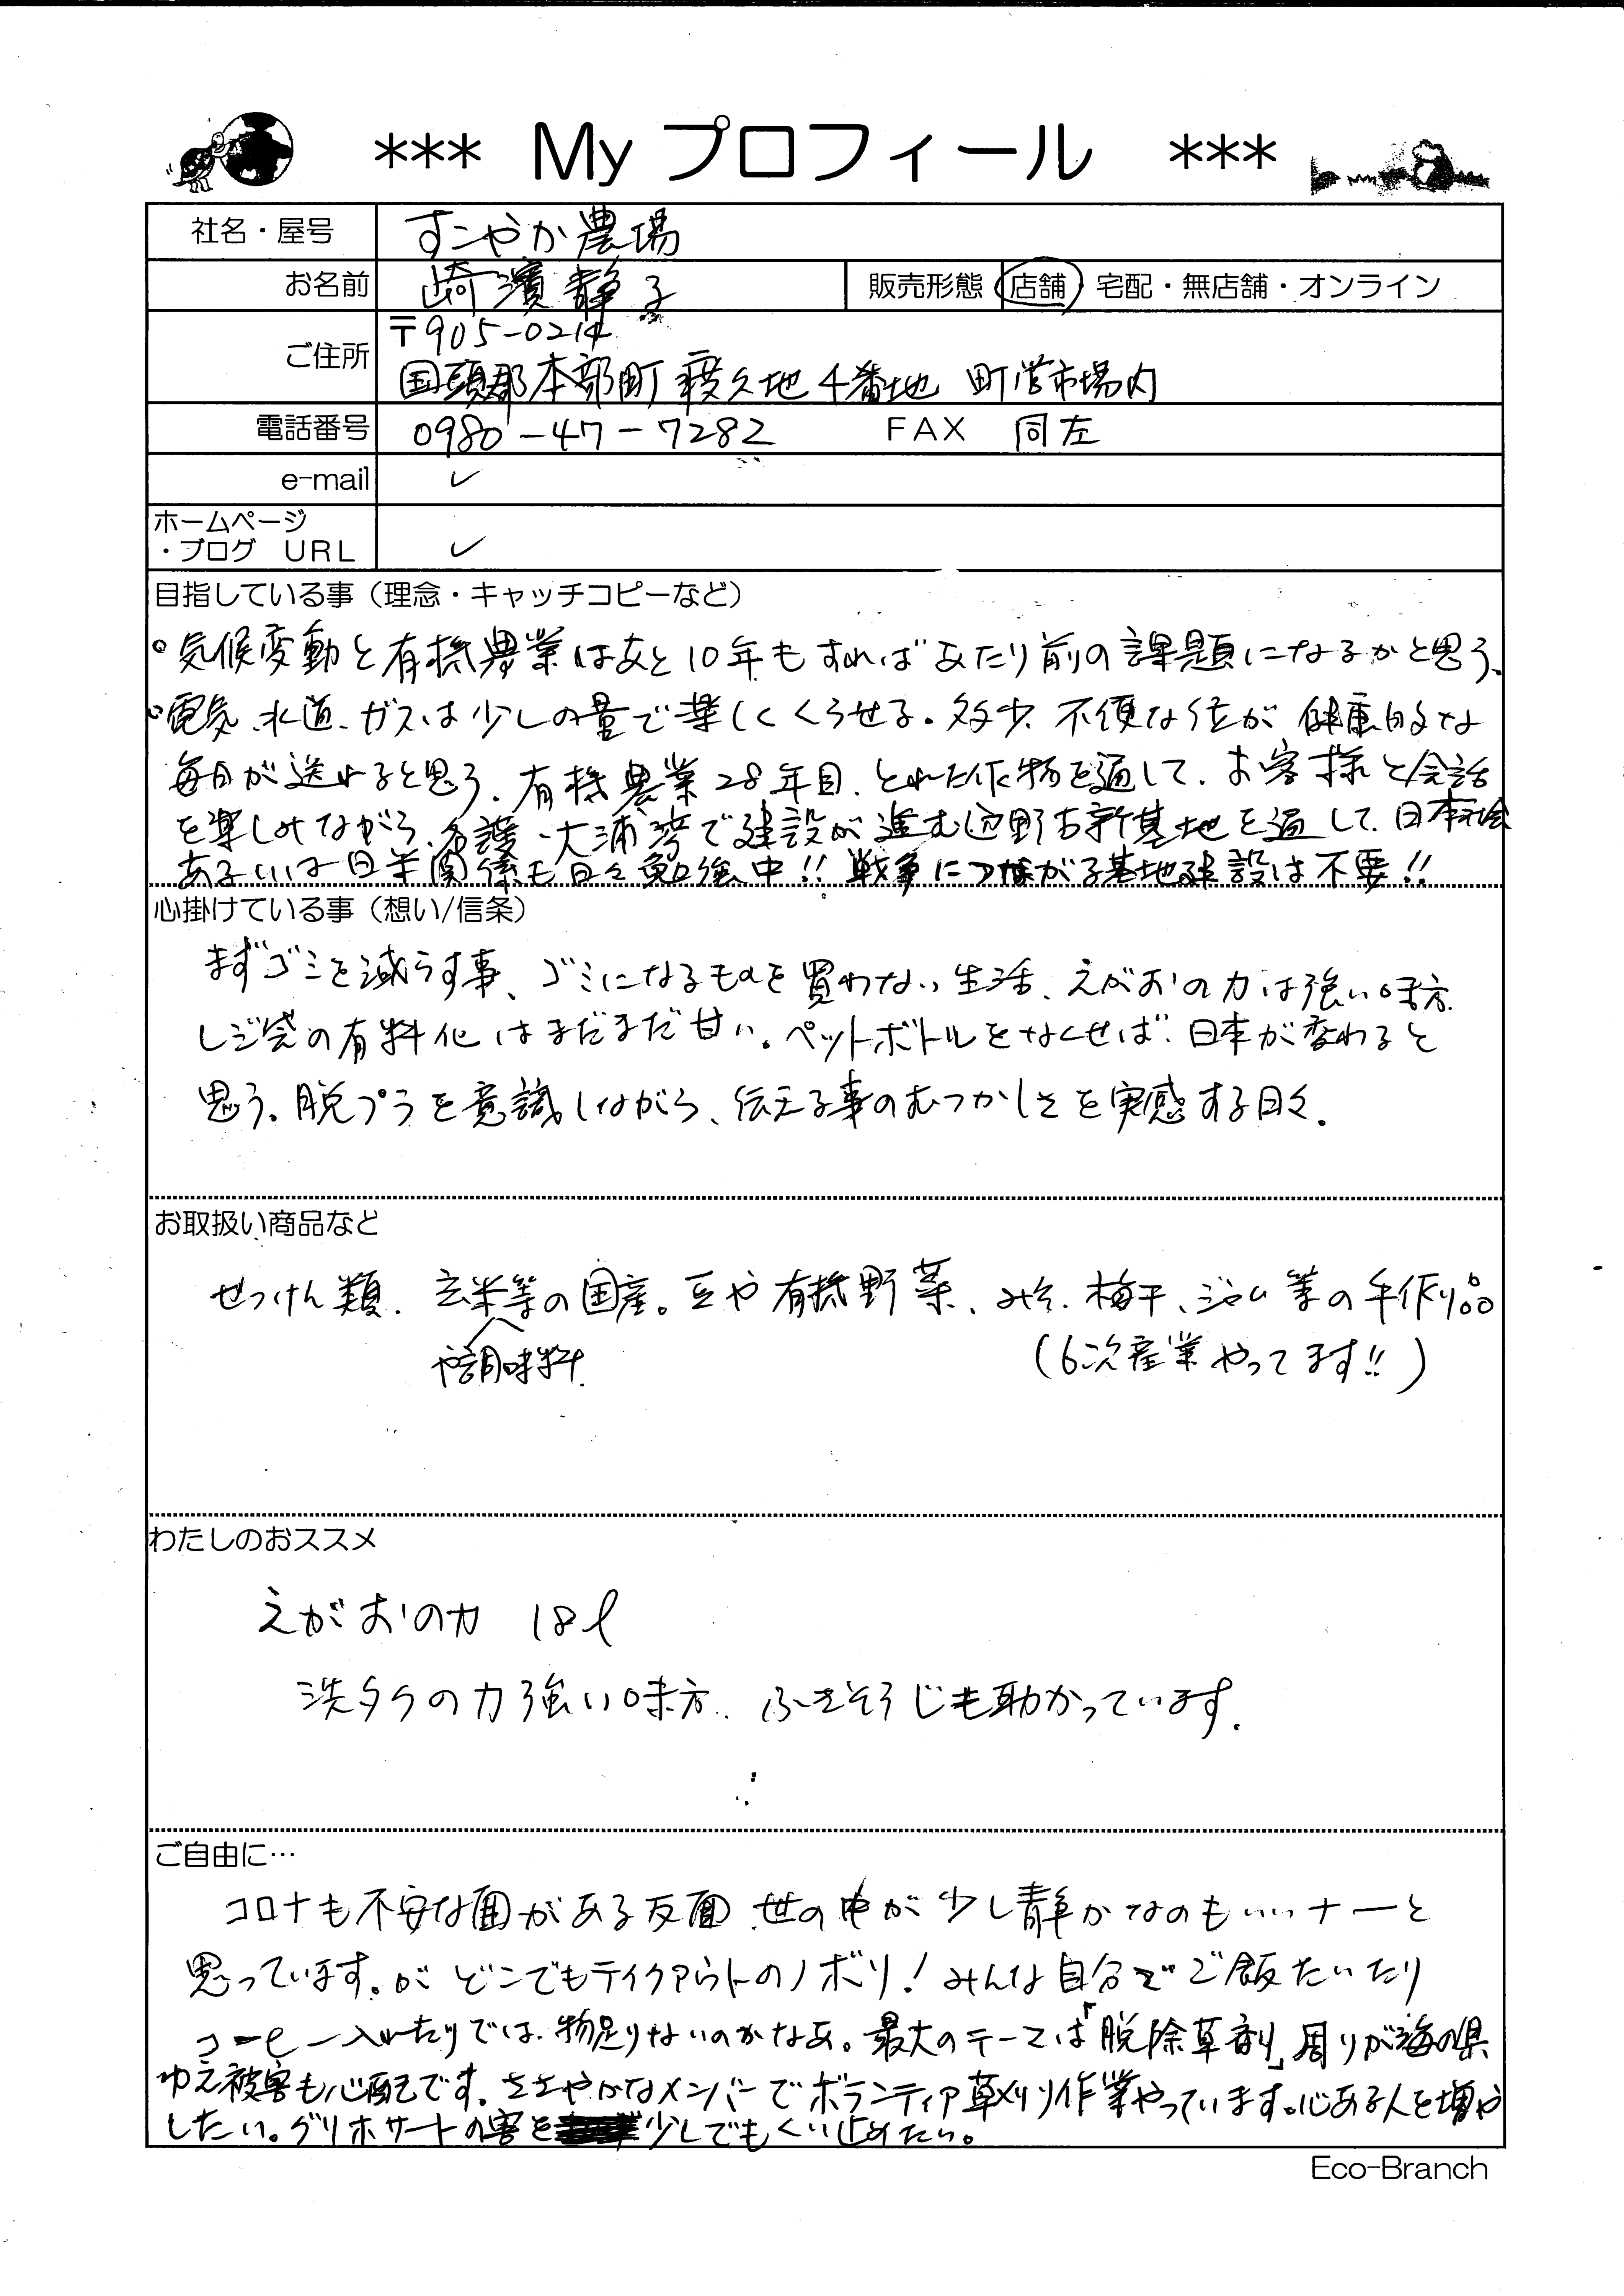 *** My プロフィール ***
社名・屋号 すこやか農場
お名前 崎濱静子 販売形態 店舗・宅配・無店舗・オンライン
〒905-0214
ご住所 国頭郡本部町渡久地4番地 町営市場内
電話番号 0980-47-7282 FAX 同左
e-mail ✓
ホームページ
・ブログ URL ✓
目指している事（理念・キャッチコピーなど）
○気候変動と有機農業はあと10年もすればあたり前の課題になるかと思う、
○電気、水道、ガスは少しの量で楽しくくらせる。多少、不便な位が健康的な
毎日が送れると思う。有機農業28年目、とれた作物を通して、お客様と会話
を楽しみながら、名護・大浦湾で建設が進む辺野古新基地を通して、日本社会
あるいは日米関係も日々勉強中!! 戦争につながる基地建設は不要!!
心掛けている事（想い/信条）
まずゴミを減らす事、ゴミになるものを買わない生活、えがおの力は強い味方。
レジ袋の有料化はまだまだ甘い。ペットボトルをなくせば、日本が変わると
思う。脱プラを意識しながら、伝える事のむつかしさを実感する日々。
お取扱い商品など
せっけん類、玄米等の国産。豆や有機野菜、みそ、梅干、ジャム等の手作り品
や調味料 (6次産業やってます!!)
わたしのおススメ
えがおの力 18ℓ
洗タクの力強い味方、ふきそうじも助かっています。
ご自由に…
コロナも不安な面がある反面、世の中が少し静かなのもいいナーと
思っています。が どこでもテイクアウトのノボリ！みんな自分でご飯たいたり
コーヒー入れたりでは、物足りないのかなあ。最大のテーマは「脱除草剤」周りが海の県
ゆえ被害も心配です。ささやかなメンバーでボランティア草刈り作業やっています。心ある人を増や
したい。グリホサートの害を少しでもくい止めたい。
Eco-Branch